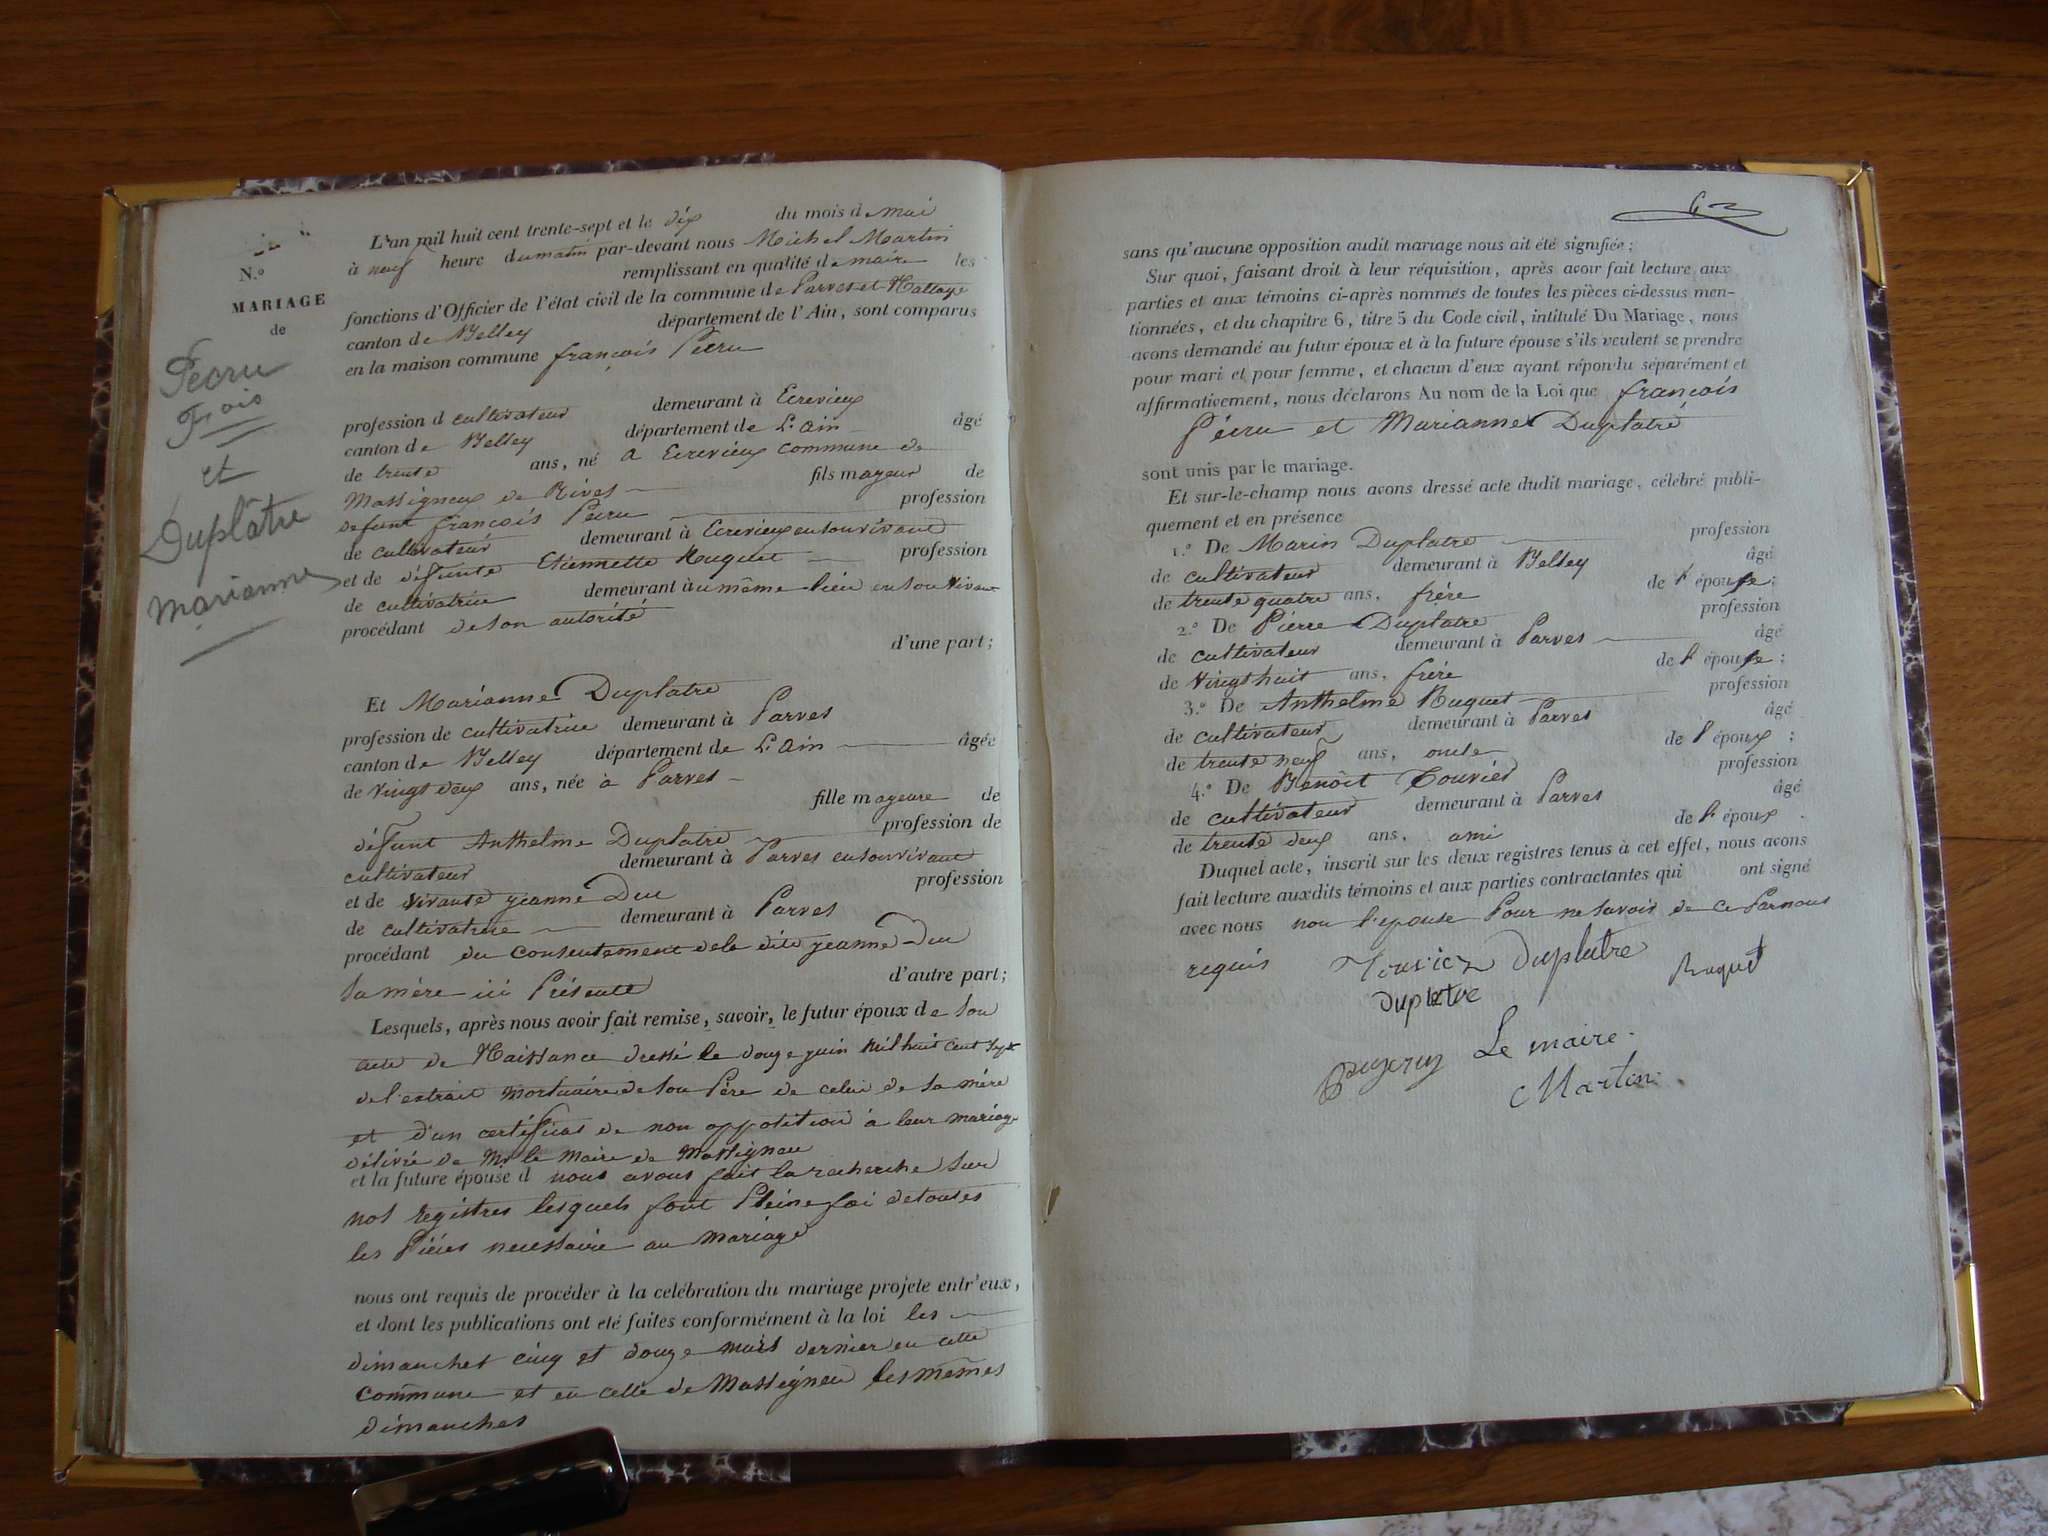 N.º
MARIAGE
de
Pecru
Frois
et
Duplâtre
Marianne
L'an mil huit cent trente-sept et le dix du mois d e mai
à neuf heure du matin par-devant nous Michel Martin
remplissant en qualité d e maire les
fonctions d'Officier de l'état civil de la commune de Parves et Nattage
canton de Belley département de l'Ain, sont comparus
en la maison commune françois Pecru
profession d cultivateur demeurant à Ecrevieux
canton de Belley département de L'ain âgé
de trente ans, né a Ecrevieux commune de
Massigneux de Rives fils mageur de
defunt françois Pecru profession
de cultivateur demeurant à Ecrevieux en son vivant
et de défunte Etiennette Ruguet profession
de cultivatrice demeurant à u même lieu en son vivant
procédant de son autorité
d'une part;
Et Marianne Duplatre
profession de cultivatrice demeurant à Parves
canton de Belley département de L'ain âgée
de vingt deux ans, née à Parves
fille mageure de
défunt Anthelme Duplatre profession de
cultivateur demeurant à Parves en son vivant
et de vivante jeanne Duc profession
de cultivatrice demeurant à Parves
procédant du consentement de la dite jeanne Duc
sa mère ici Présente d'autre part;
Lesquels, après nous avoir fait remise, savoir, le futur époux d e son
acte de Naissance dressé le douze juin mil huit cent sept
de l'extrait mortuaire de son Père de celui de sa mère
et d'un certificat de non oppotition à leur mariage
délivré de Mr le Maire de Massigneu
et la future épouse d nous avons fait la recherche sur
nos registres lesquels font Pleine foi de toutes
les Piéces necessaire au mariage
nous ont requis de procéder à la celébration du mariage projete entr'eux,
et dont les publications ont eté faites conformément à la loi les
dimanches cinq et douze mars dernier en cette
commune et en celle de Massigneu les mêmes
dimanches
63
sans qu'aucune opposition audit mariage nous ait été signifiée;
Sur quoi, faisant droit à leur réquisition, après avoir fait lecture aux
parties et aux témoins ci-après nommés de toutes les pièces ci-dessus men-
tionnées, et du chapitre 6, titre 5 du Code civil, intitulé Du Mariage, nous
avons demandé au futur époux et à la future épouse s'ils veulent se prendre
pour mari et pour femme, et chacun d'eux ayant répondu séparément et
affirmativement, nous déclarons Au nom de la Loi que françois
Pécru et Marianne Duplatre
sont unis par le mariage.
Et sur-le-champ nous avons dressé acte dudit mariage, célébré publi-
quement et en présence
1.º De Marin Duplatre profession
de cultivateur demeurant à Belley âgé
de trente quatre ans, frère de l'épouse;
2.º De Pierre Duplatre profession
de cultivateur demeurant à Parves âgé
de vingt huit ans, frére de l'épouse;
3.º De Anthelme Ruguet profession
de cultivateur demeurant à Parves âgé
de trente neuf ans, oncle de l'époux;
4.º De Benoît Touvier profession
de cultivateur demeurant à Parves âgé
de trente deux ans, ami de l'époux.
Duquel acte, inscrit sur les deux registres tenus à cet effet, nous avons
fait lecture auxdits témoins et aux parties contractantes qui ont signé
avec nous non l'epouse Pour ne savoir de ce Par nous
requis Touvier Duplatre Ruguet
Duplatre
Le maire
Martin